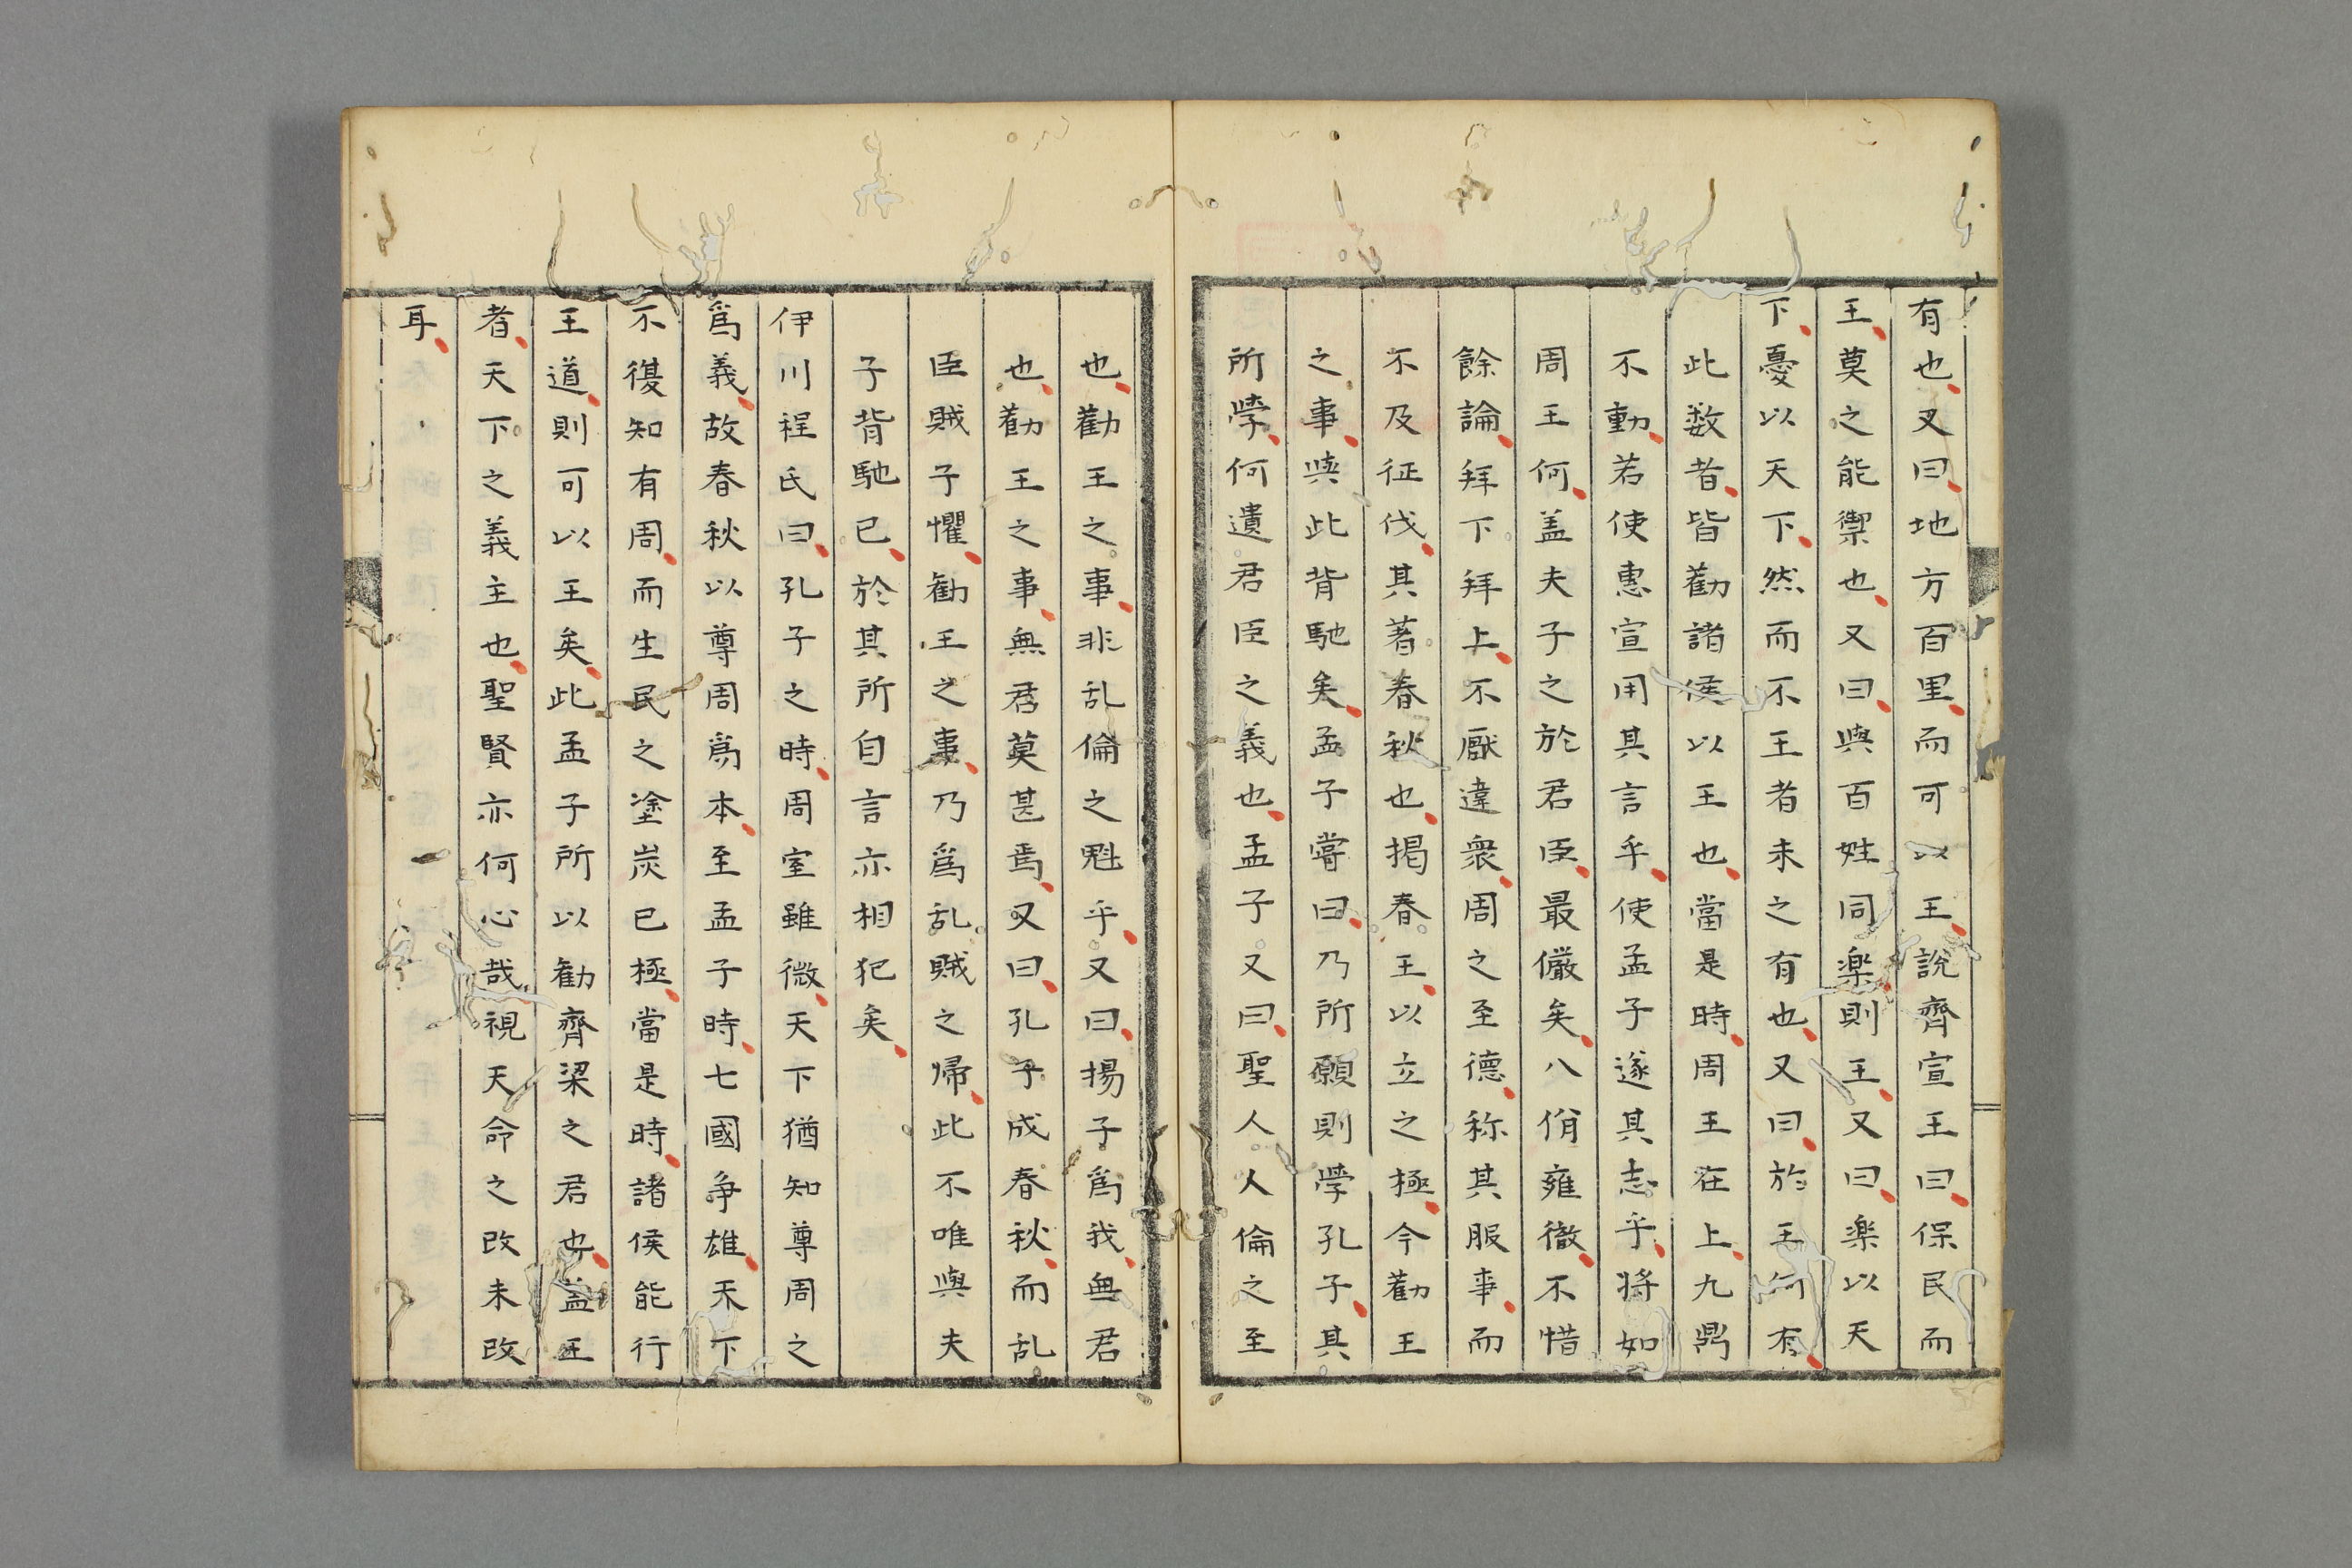 有也又曰地方百里而可以王説齊宣王曰保民而
王莫之能禦也又曰與百姓同楽則王又曰楽以天
下憂以天下然而不王者未之有也又曰於王何有
此数者皆勸諸侯以王也當是時周王在上九鼎
不動若使惠宣用其言乎使孟子遂其志乎将如
周王何盖夫子之於君臣最儼矣八佾雍徹不惜
餘論拜下拜上不厭違衆周之至德称其服事而
不及征伐其著春秋也掲春王以立之極今勸王
之事與此背馳矣孟子嘗曰乃所願則學孔子其
所學何遺君臣之義也孟子又曰聖人人倫之至
也勸王之事非乱倫之魁乎又曰揚子爲我無君
也勸王之事無君莫甚焉又曰孔子成春秋而乱
臣賊子懼勧王之事乃爲乱賊之帰此不唯與夫
子背馳已於其所自言亦相犯矣
伊川程氏曰孔子之時周室雖微天下猶知尊周之
爲義故春秋以尊周爲本至孟子時七國争雄天下
不復知有周而生民之塗炭已極當是時諸侯能行
王道則可以王矣此孟子所以勧齊梁之君也盖王
者天下之義主也聖賢亦何心哉視天命之改未改
耳